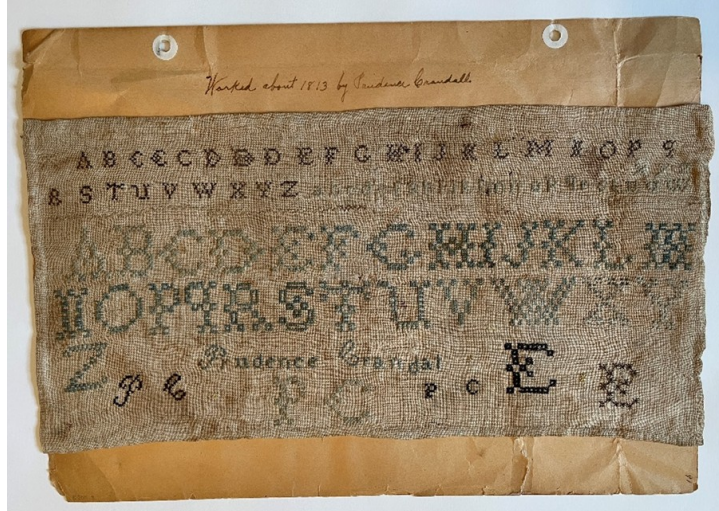 Worked about 1813 by Prudence Crandall
A B C C C D D D E F G H I J K L M N O P q
R S T U V W X Y Z
A B C D E F G H I J K L M
N O P q R S T U V W X Y
Z Prudence Crandal
P C P C P C E E